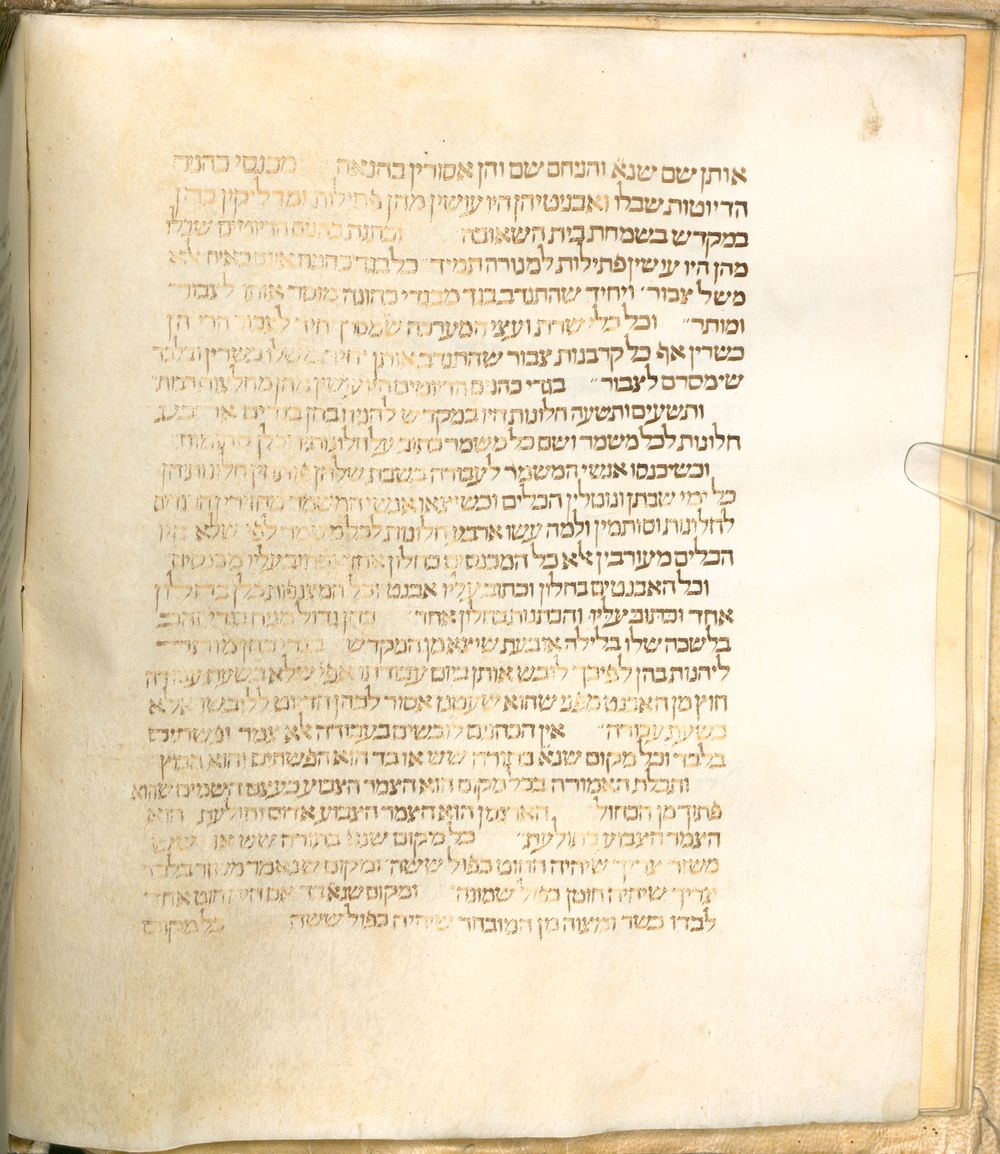 אותן שם שנא והניחם שם והן אסורין בהנאה מכנסי כהנה
הדיוטות שבלו ואבניטיהן היו עושין מהן פתילות ומדליקין בהן
במקדש בשמחת בית השאובה וכתנת כהנים הדיוטים שבלו
מהן היו עושין פתילות למנורה תמיד כל בגדי כהנה אינם באין אלא
משל צבור ויחיד שהתנדב בגד מבגדי כהונה מוסר אותו לצבור
ומותר וכל כלי שרת ועצי המערכה שמסרן יחיד לצבור הרי הן
כשרין אף כל קרבנות צבור שהתנדב אותן יחיד משלו כשרין ובלבד
שימסרם לצבור בגדי כהנים הדיוטים היו עושין מהן
ותשעים ותשעה חלונות היו במקדש להניח בהן בגדים
חלונות לכל משמר ושם כל משמר כתוב על חלונותיו וכלן סתומות
וכשיכנסו אנשי המשמר לעבודה בשבת שלהן פותחין חלונותיהן
כל ימי שבתן ונוטלין הכלים וכשיצאו אנשי המשמר מחזירין הכלים
לחלונות וסותמין ולמה עשו ארבע חלונות לכל משמר לפי שלא היו
הכלים מעורבין אלא כל המכנסים בחלון אחד וכתוב עליו מכנסים
וכל האבנטים בחלון וכתוב עליו אבנט וכל המצנפות כלן בחלון
אחד וכתוב עליו והכתנות בחלון אחד כהן גדול מניח בגדי זהב
בלשכה שלו בלילה או בעת שיצא מן המקדש בגדי כהן מותר
ליהנות בהן לפיכך לובש אותן ביום עבודתו אפי שלא בשעת עבודה
חוץ מן האבנט מפני שהוא שעטנז אסור לכהן הדיוט ללובשו אלא
בשעת עבודה אין הכהנים לובשים בעבודה אלא צמר ופשתים
בלבד וכל מקום שנא בתורה שש או בד הוא הפשתים והוא הבוץ
ותכלת האמורה בכל מקום הוא הצמר הצבוע כעצם השמים שהוא
פתוך מן הכחול הארגמן הוא הצמר הצבוע אדום ותולעת הוא
הצמר הצבוע בתולעת כל מקום שנא בתורה שש או שש
משזר צריך שיהיה החוט כפול ששה ומקום שנאמר משזר בלבד
צריך שיהיה חוטן כפול שמונה ומקום שנא בד אם היה חוט אחד
לבדו כשר ומצוה מן המובחר שיהיה כפול ששה כל מקום